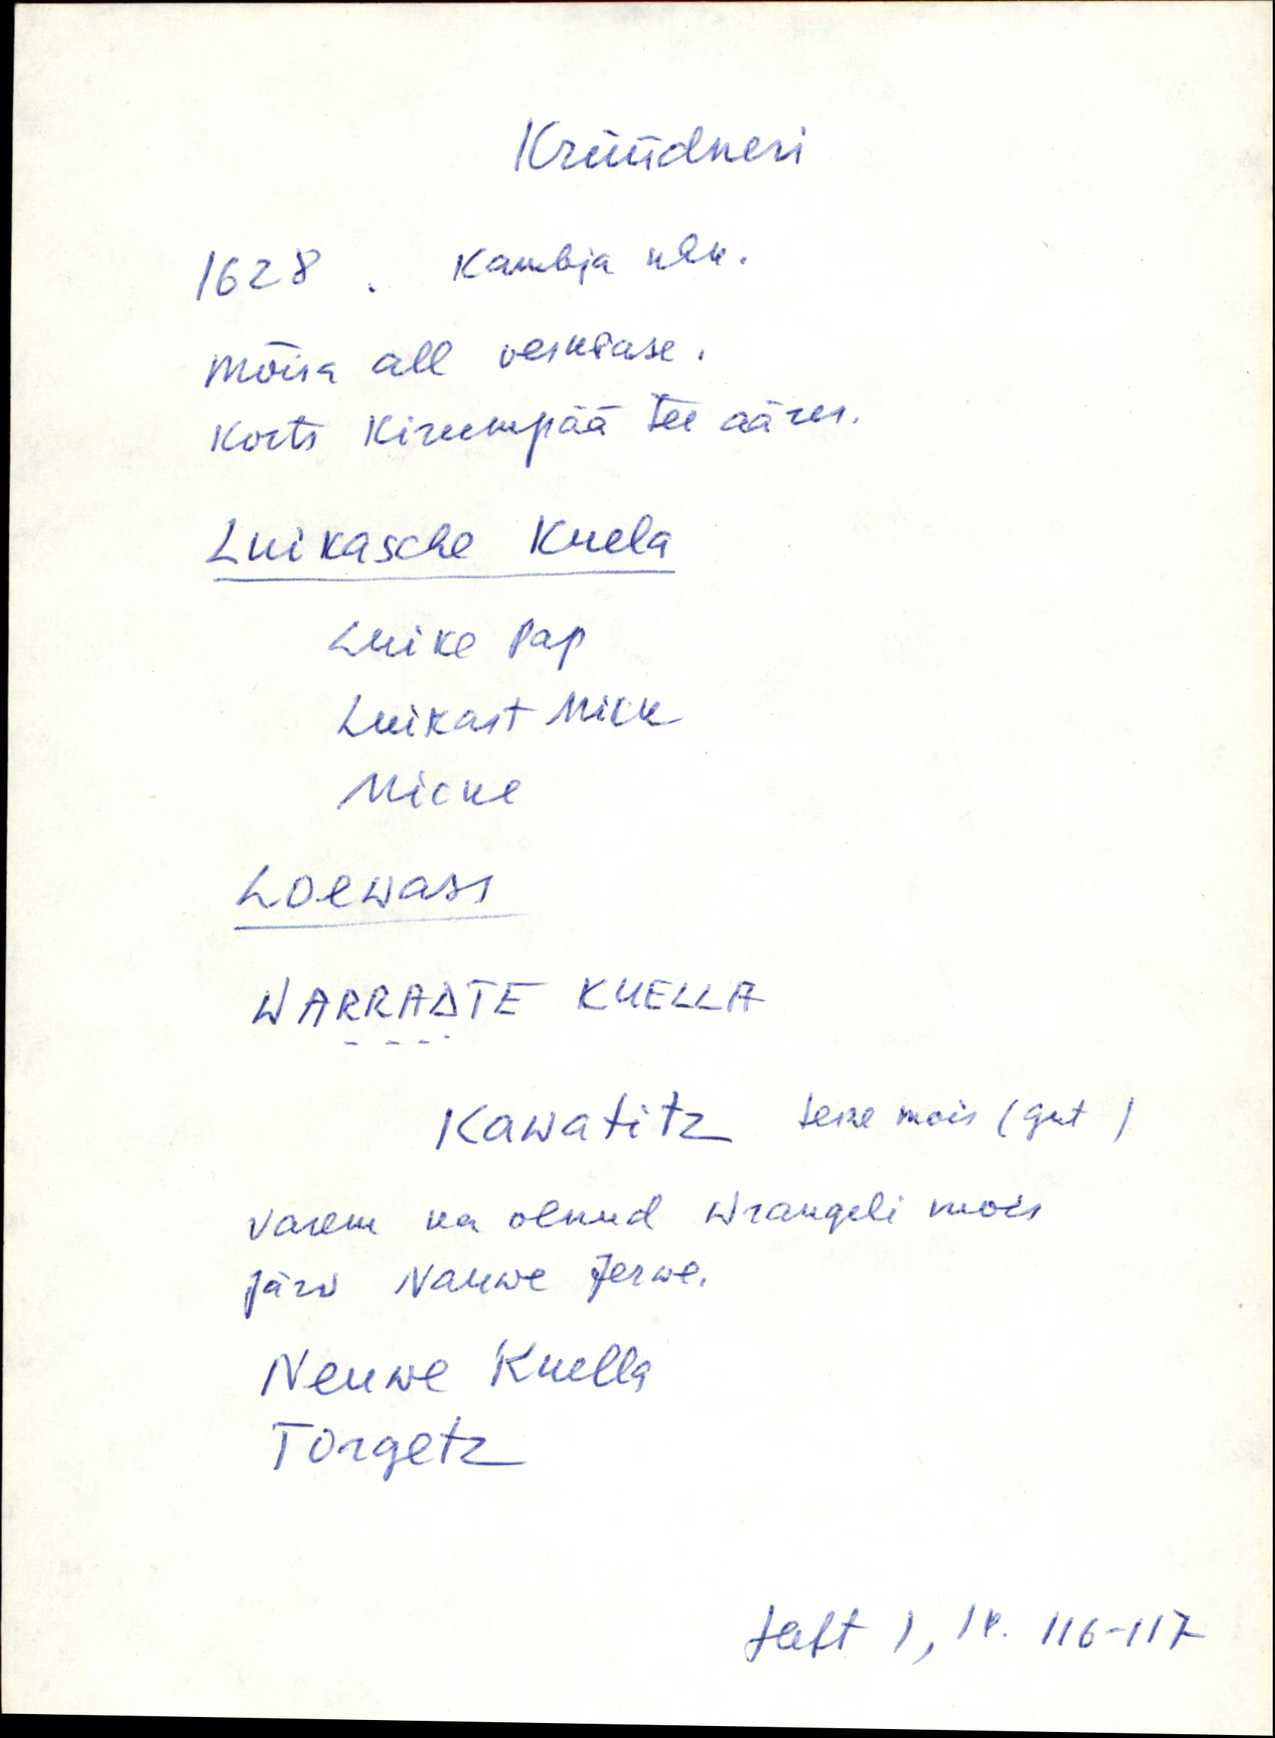 Krüüdneri
1628. Kambja khk.
Mõisa all veskiase.
Korts Kirumpää tee ääres.
Luikasche Kuela
Luike Pap
Luikast Mick
Micke
Loewass
WARRADTE KUELLA
Kawatitz mois (gut)
varem ka olnud Wrangeli mois
järv Nauwe Jerwe.
Neuwe Kuella
Torgetz
Heft 1, lk. 116-117